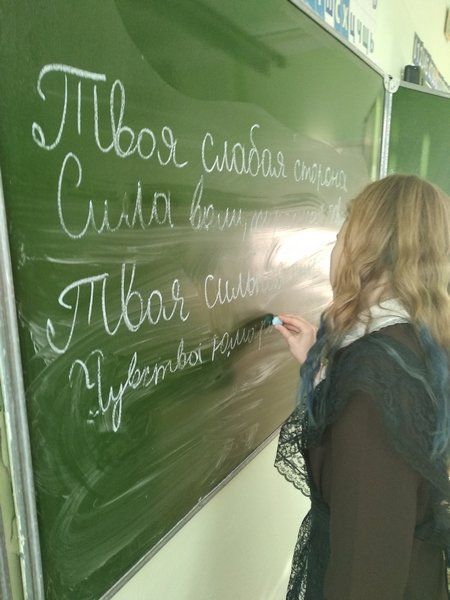 Твоя слабая сторона
Сила воли,
Твоя
Чувство юмо